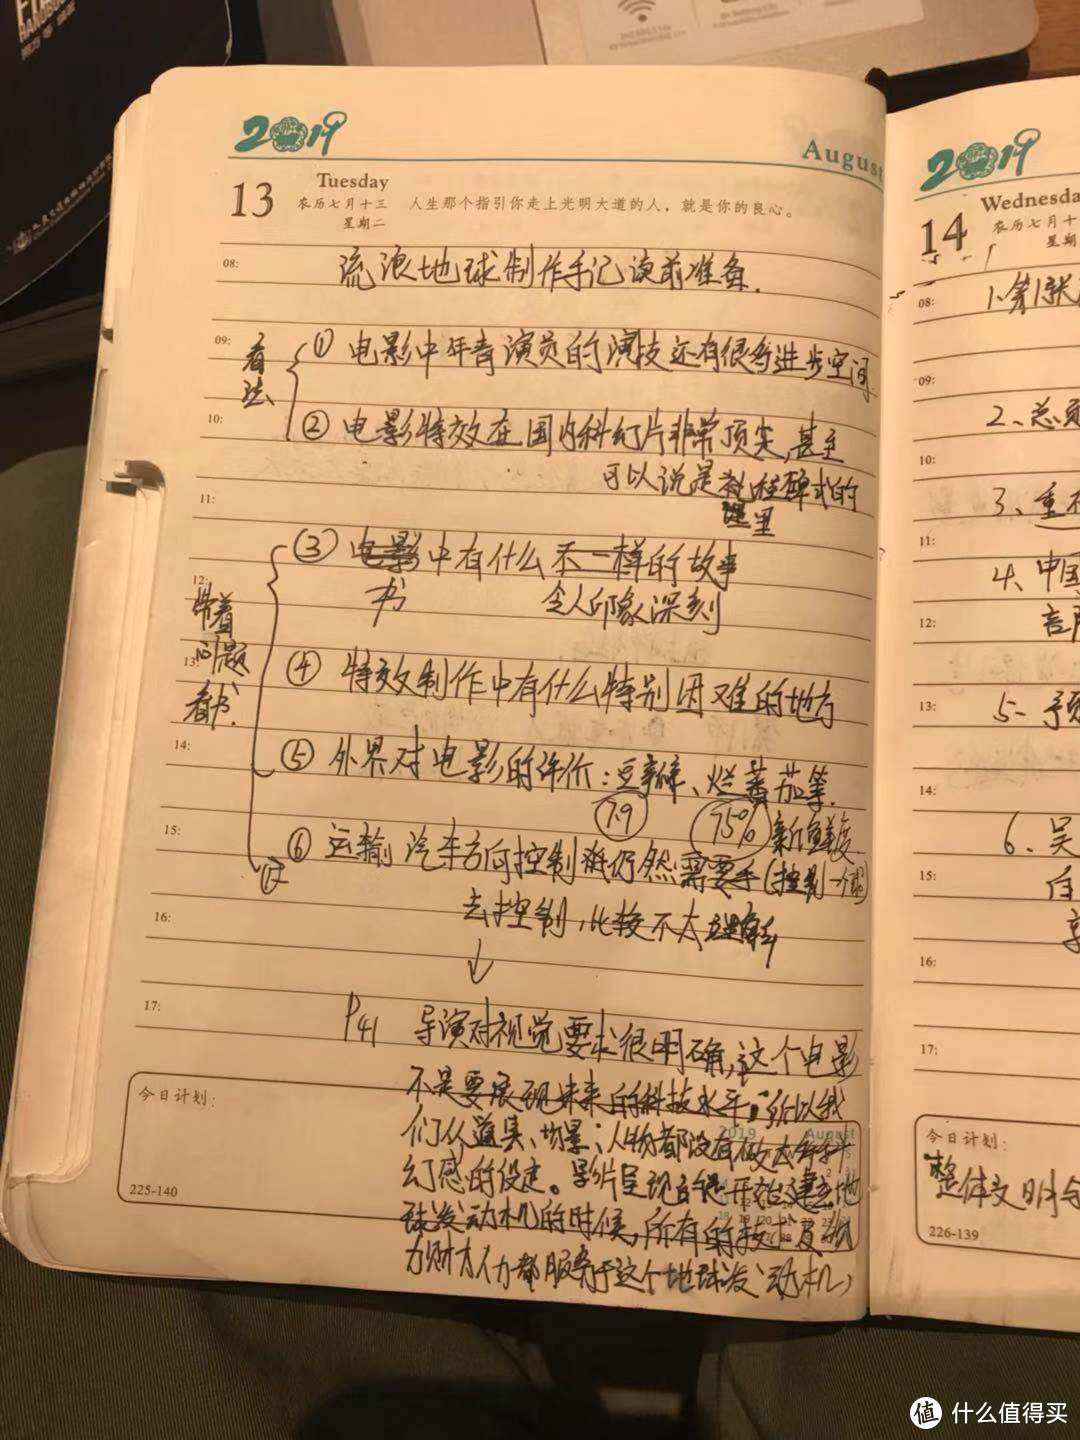 2019
August
13
Tuesday
农历七月十三
星期二
人生那个指引你走上光明大道的人，就是你的良心。
08:
流浪地球制作手记读前准备.
09:
看法
① 电影中年青演员的演技还有很多进步空间.
10:
② 电影特效在国内科幻片非常顶尖,甚至
可以说是里程碑式的
11:
③ 电影中有什么不一样的故事
书 令人印象深刻
12:
带着
问题
看书.
13:
④ 特效制作中有什么特别困难的地方
14:
⑤ 外界对电影的评价:豆瓣、烂蕃茄等.
7.9 75% 新鲜度
15:
⑥ 运输汽车方向控制 仍然需要手(控制一个球)
去控制,比较不太理解
16:
↓
17:
P41 导演对视觉要求很明确,这个电影
不是要展现未来的科技水平,所以我
们从道具、场景;人物都没有做太多科
幻感的设定。影片呈现的是开始建造地
球发动机的时候,所有的技术及物
力财力人力都服务于这个地球发动机,
今日计划:
2019 August
225-140
2019
14
Wednesda
农历七月十
星期
08:
1.第1张
09:
2、总
10:
3、重
11:
4、中国
12:
13:
5-预
14:
6、吴
15:
16:
17:
今日计划:
整体文明
226-139
值 什么值得买